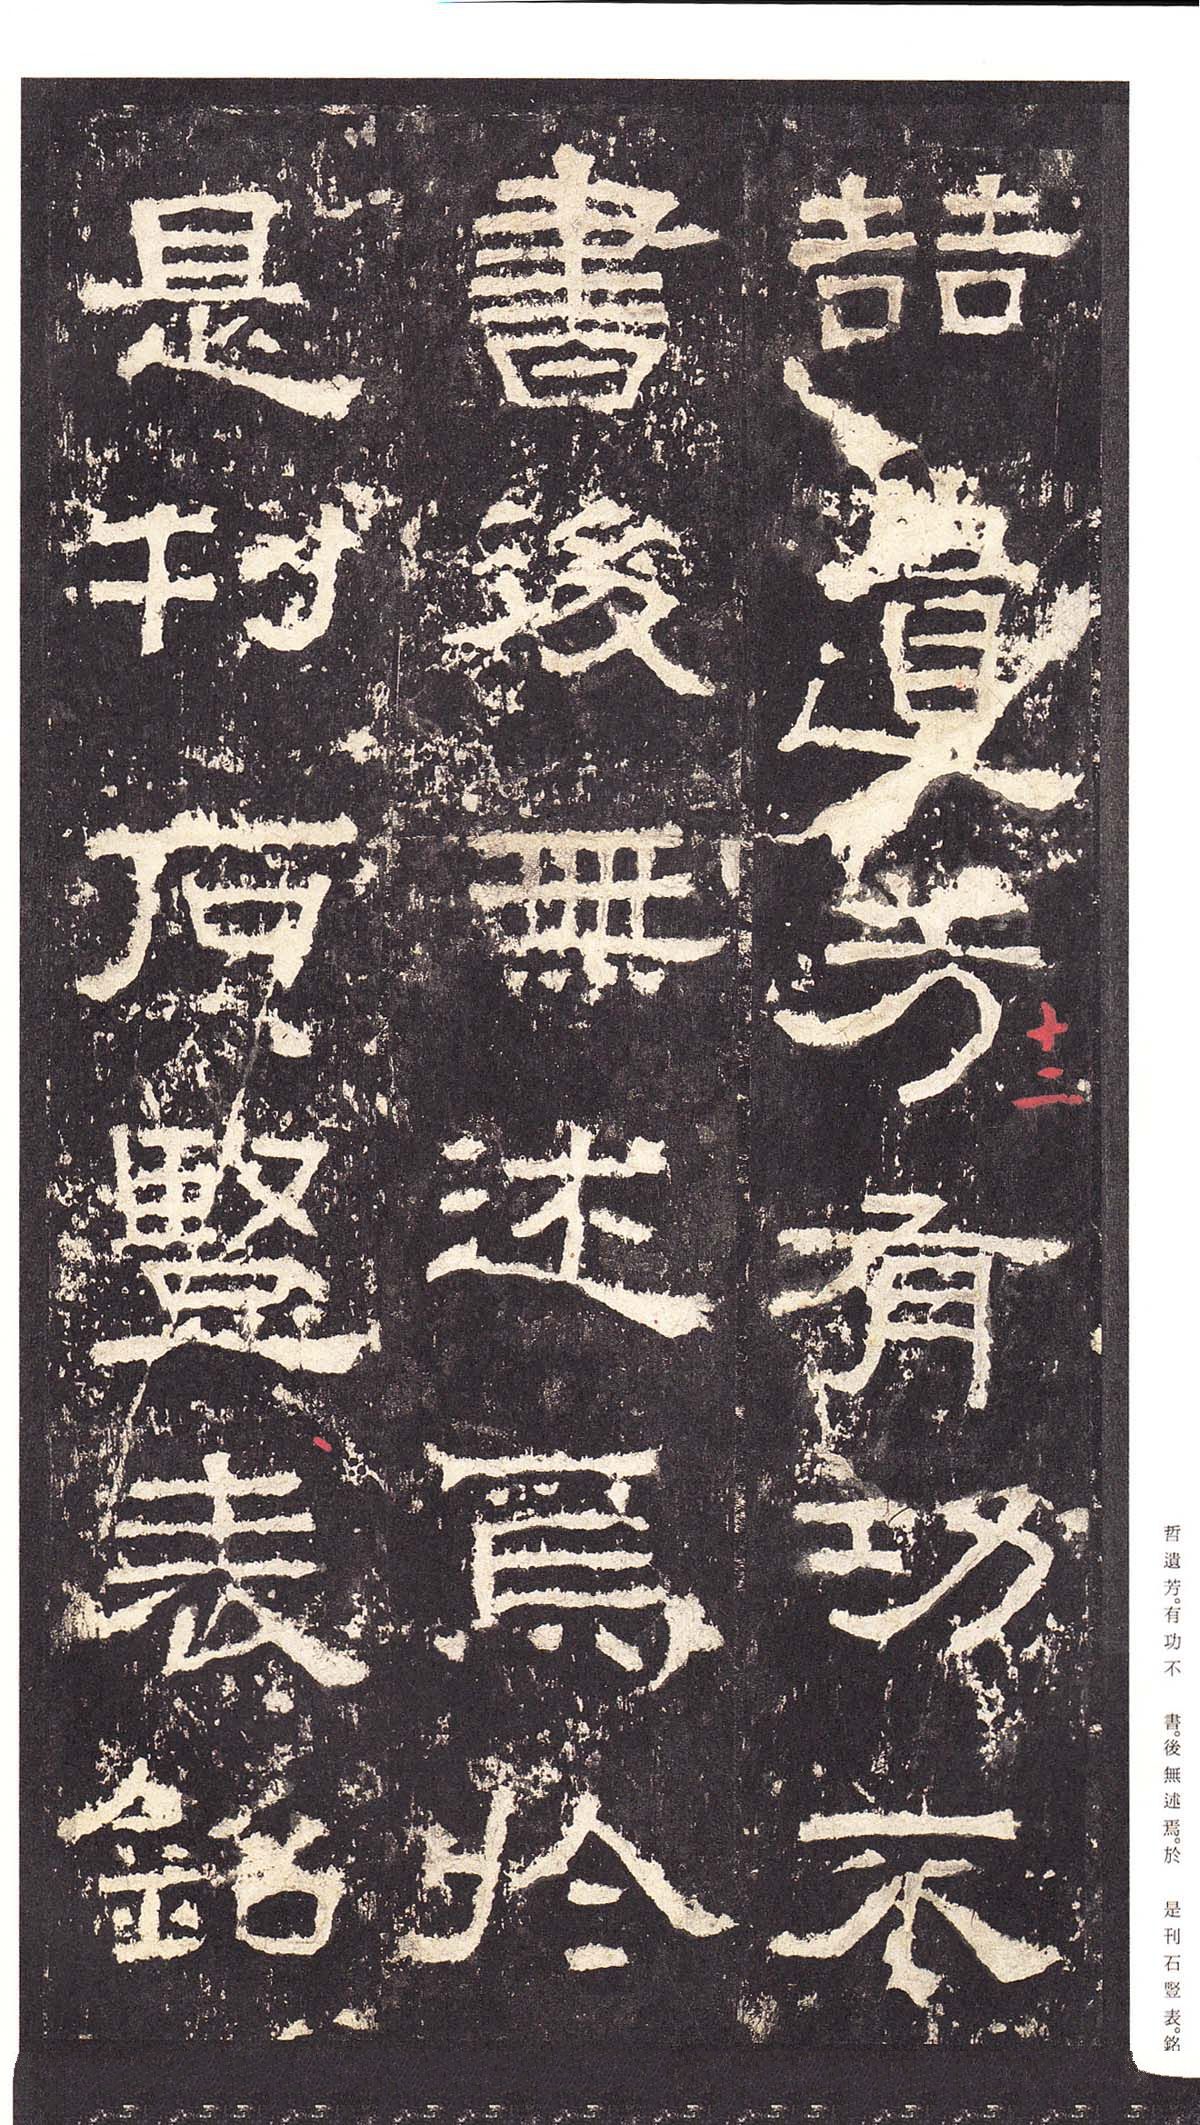 喆遺芳有功不
書後無述焉於
是刊石豎表銘
十二
哲遺芳。有功不 書。後無述焉。於 是刊石豎表。銘